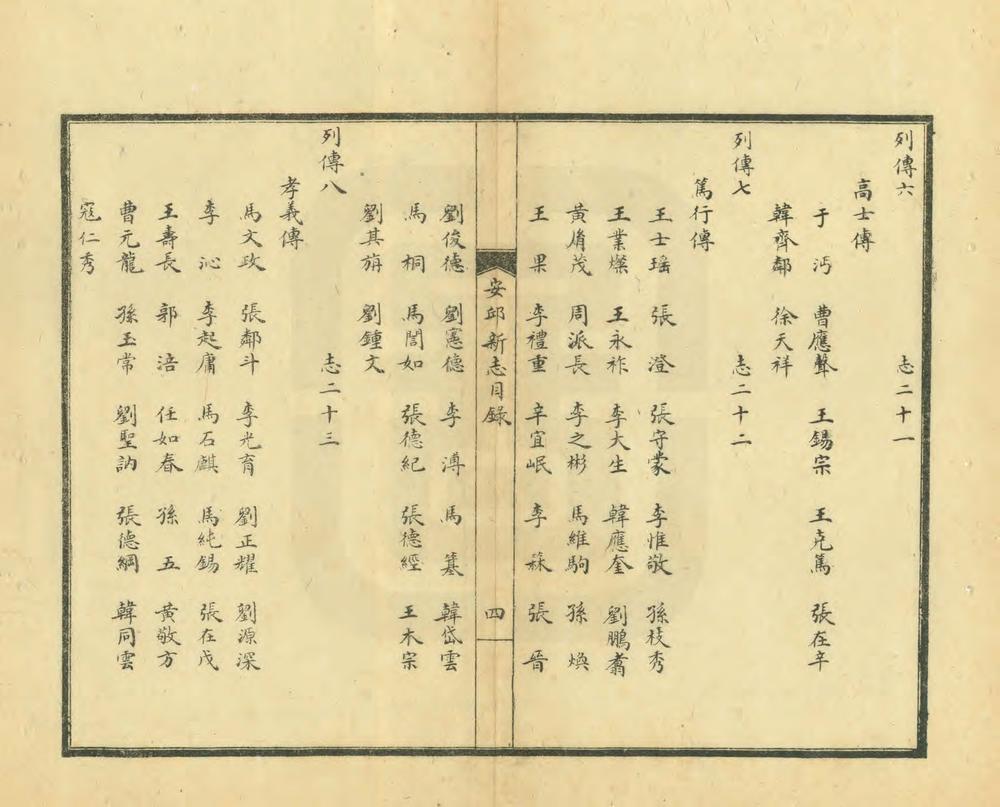 列傳六 志二十一
高士傳
于沔 曹應聲 王錫宗 王克篤 張在辛
韓齊鄰 徐天祥
列傳七 志二十二
篤行傳
王士瑶 張澄 張守蒙 李惟敬 孫枝秀
王業燦 王永祚 李大生 韓應奎 劉鵬翥
黃㡾茂 周派長 李之彬 馬維駒 孫煥
王果 李禮重 辛宜岷 李 張晉
安邱新志目錄 四
劉俊德 劉憲德 李溥 馬 韓岱雲
馬桐 馬誾如 張德紀 張德經 王木宗
劉其旃 劉鍾文
列傳八 志二十三
孝義傳
馬文政 張鄰斗 李光育 劉正耀 劉源深
李沁 李起庸 馬石麒 馬純錫 張在戊
王壽長 郭涪 任如春 孫五 黃敬方
曹元龍 孫玉常 劉聖訥 張德綱 韓同雲
寇仁秀